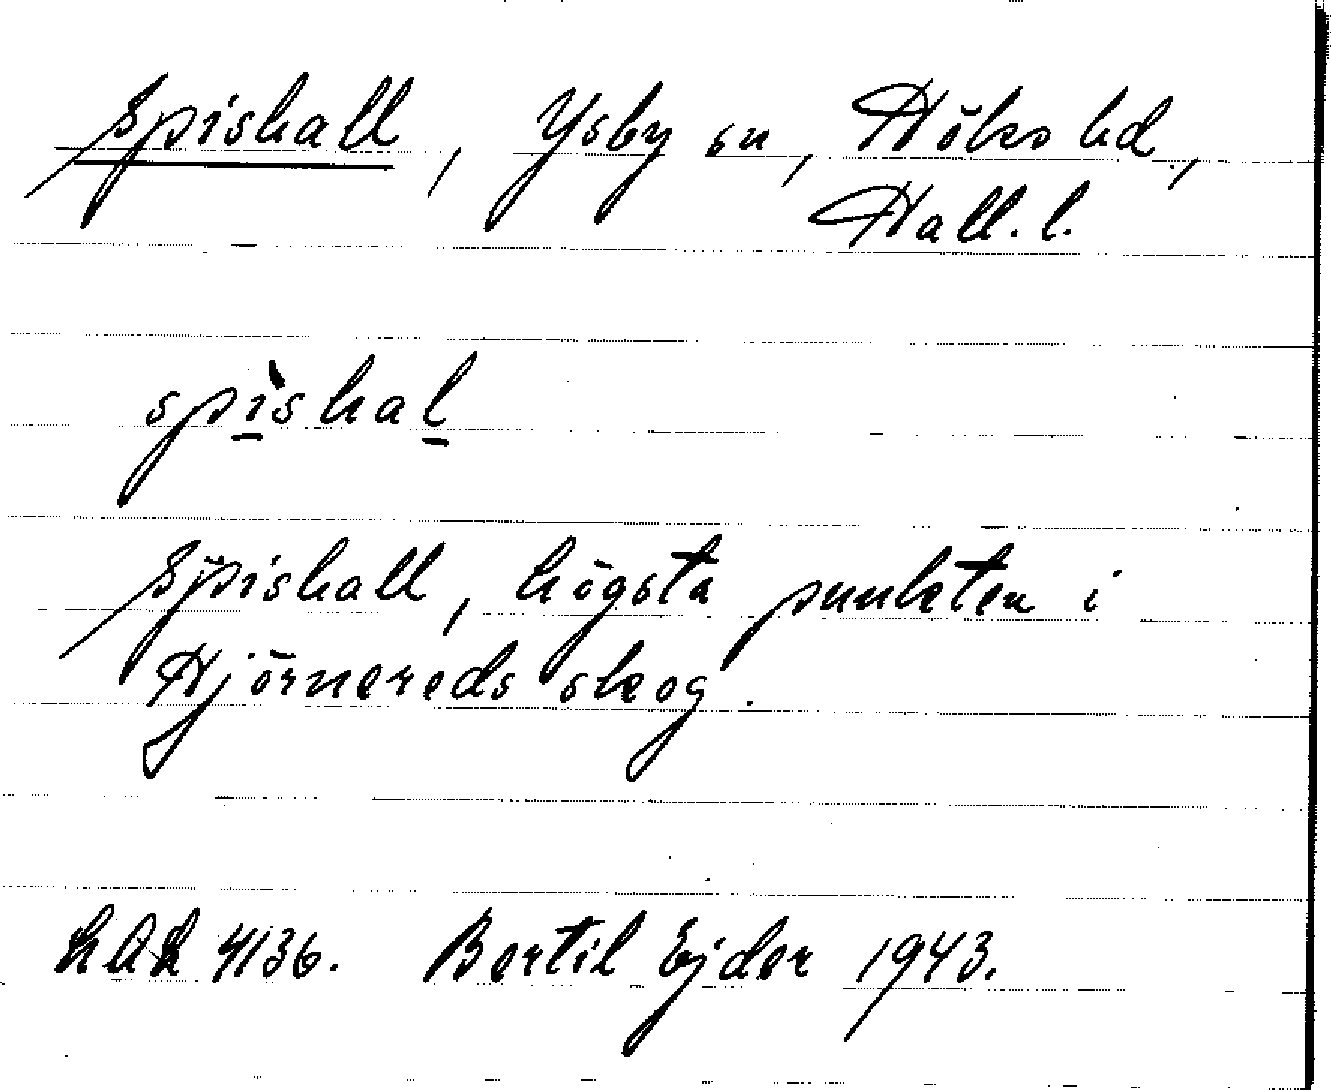 Spishall, Ysby sn, Höks hd.,
Hall. l.
spì̲shal̲
Spishall, högsta punkten i
Hjörnereds skog.
LAL 4136. Bertil Ejder 1943.